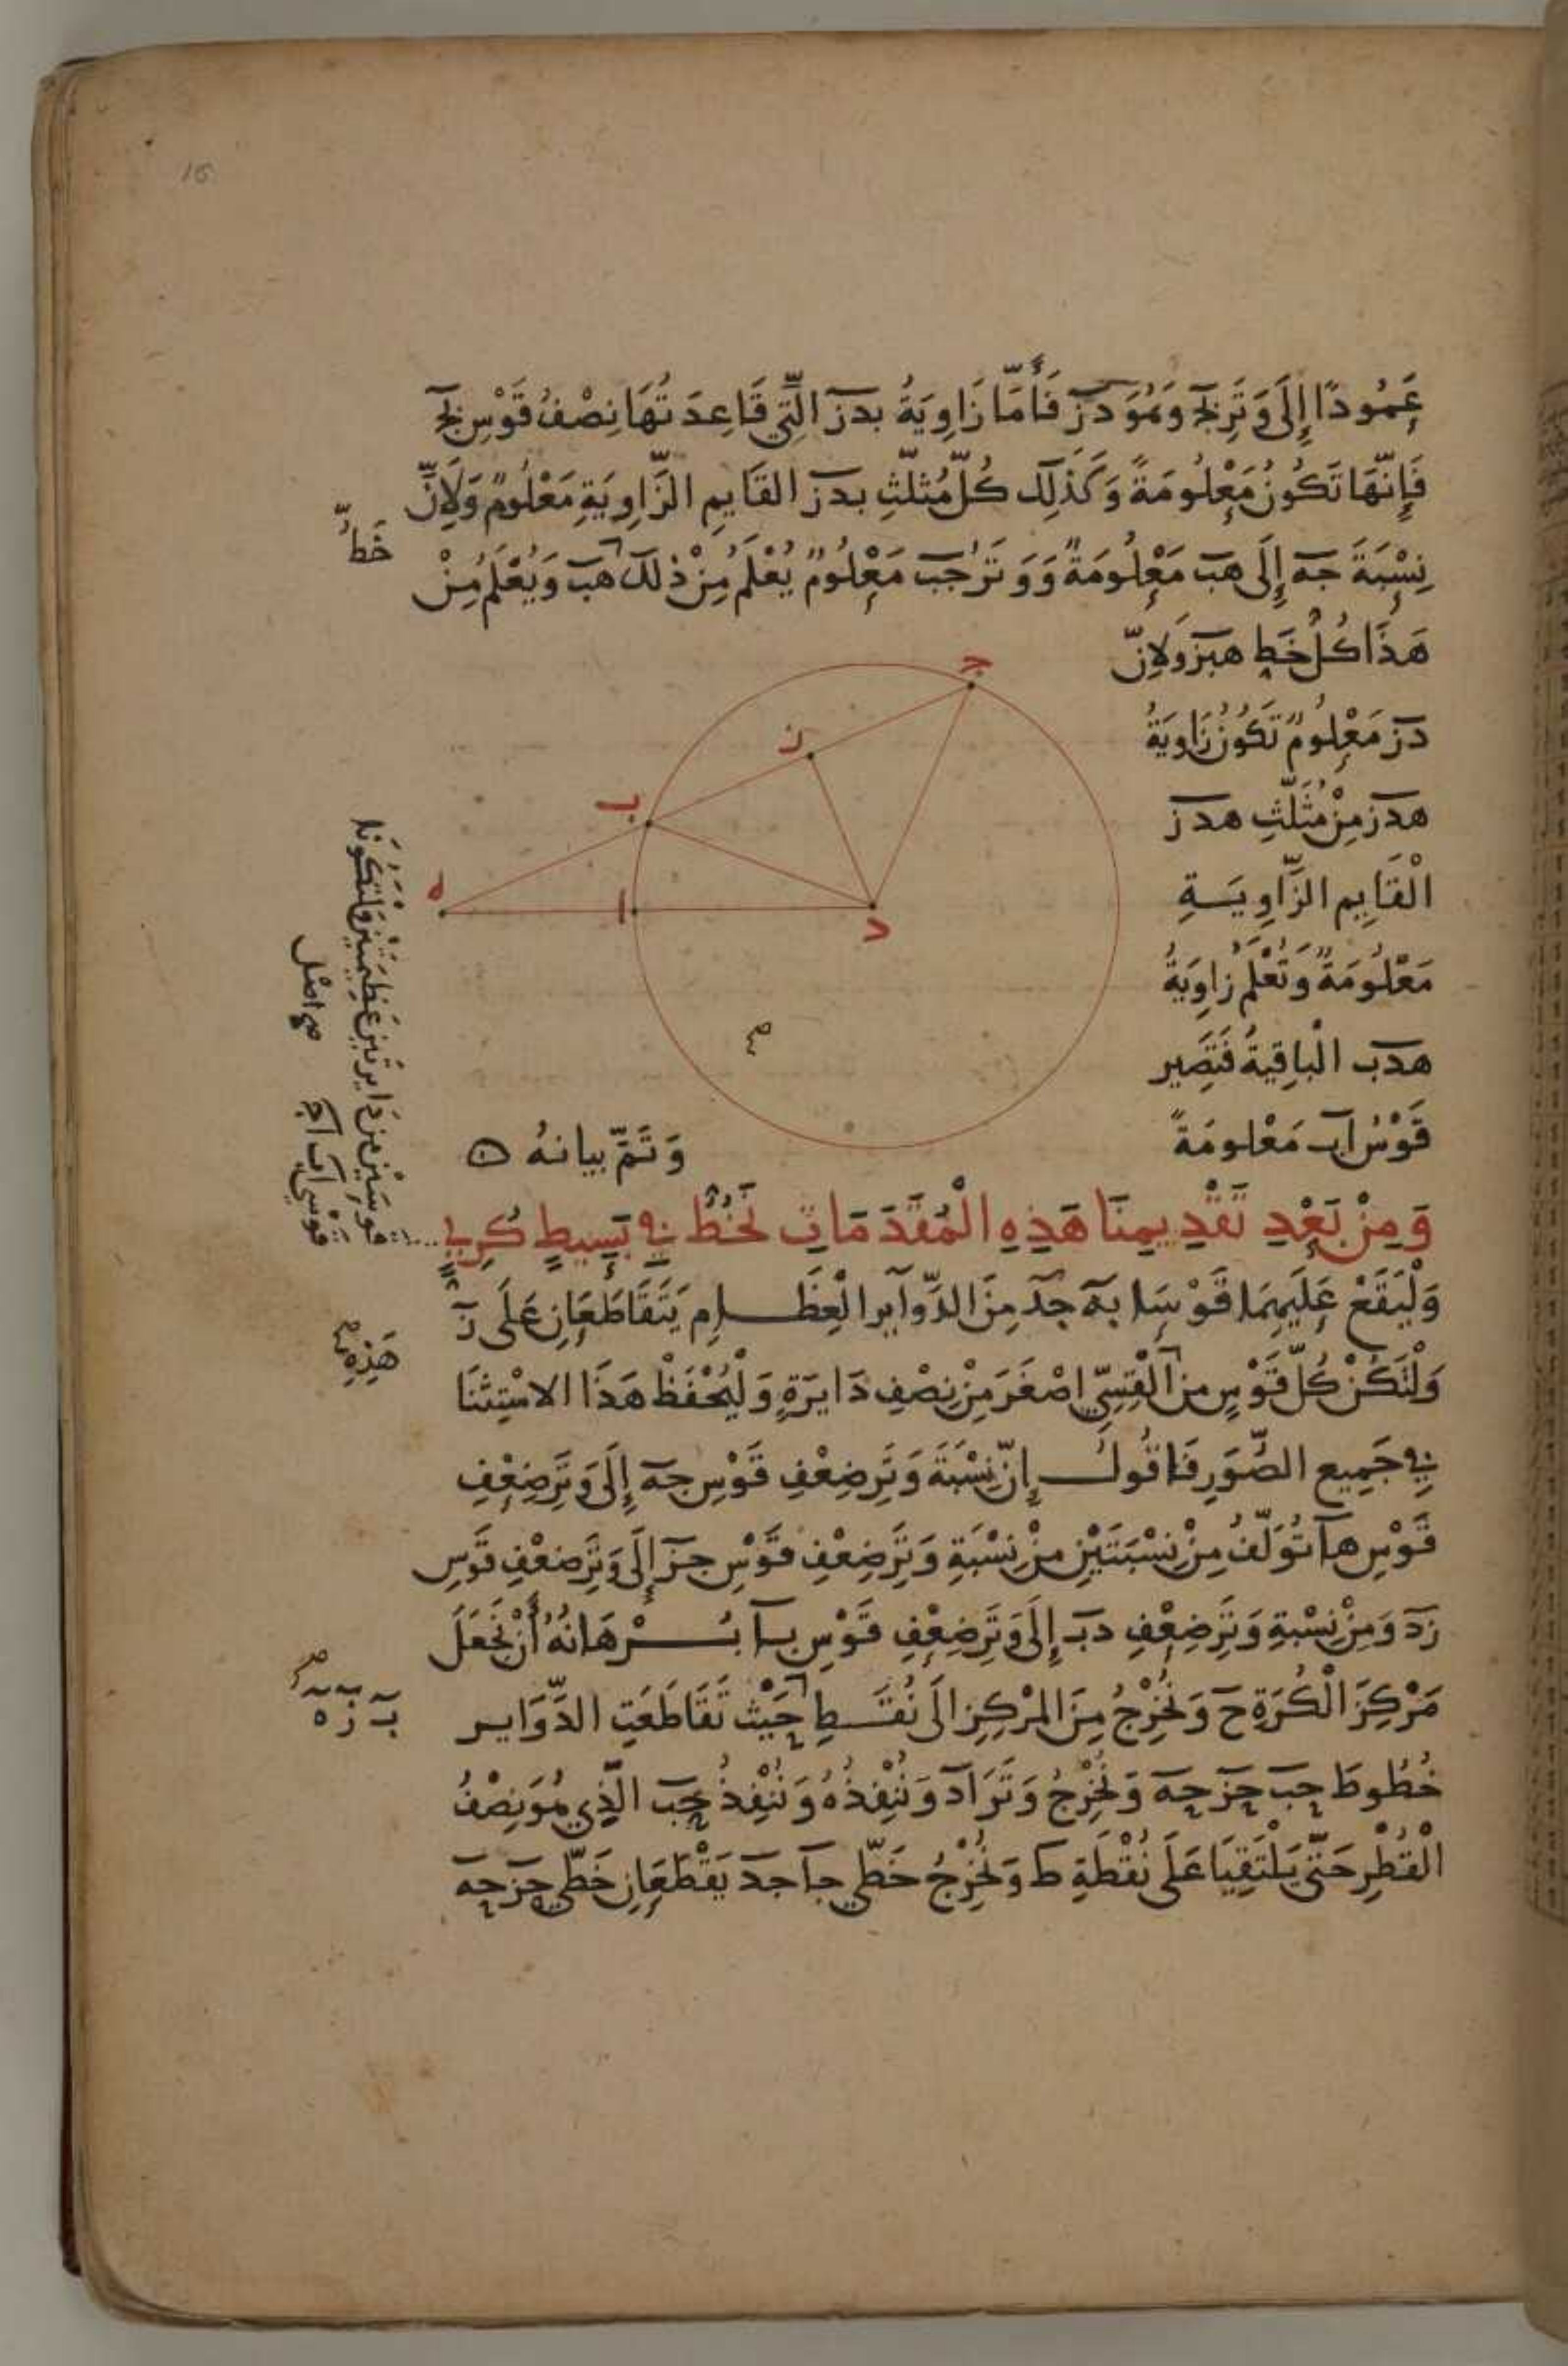 عَمُودًا إِلَى وَتَرِ بج وَهُوَ دز فَأَمَّا زَاوِيَةُ بدز الَّتِي قَاعِدَتُهَا نِصْفُ قَوْسِ بج
فَإِنَّهَا تَكُونُ مَعْلُومَةً وَكَذَلِكَ كُلُّ مُثلَّثِ بدز القَايِمِ الزَّاوِيَةِ مَعْلُومٌ وَلَانَّ
خَطُّ
نِسْبَةَ جه إِلَى هب مَعْلُومَةٌ وَوَتَرُ جب مَعْلُومٌ يُعْلَمُ مِنْ ذلك هب وَيُعْلَمُ مِنْ
هَذَا كُلُّ خَطِ هبز وَلانّ
دز مَعْلُومٌ تَكُونُ زَاوِيَةُ
هدز مِنْ مُثَلَّثِ هدز
الْقَايِمِ الزَّاوِيَةِ
مَعْلُومَةً وَتُعْلَمُ زاوِيَةُ
هدب الْبَاقِيةُ فَتَصِير
قَوْسُ اب مَعْلومَةً
وَتَمَّ بيانهُ ه
ج
ز
ب
ه
ا
د
وَمِنْ بَعْدِ تَقْدِيمِنَا هَذِهِ الْمُقَدَمَاتِ نَخُطُّ فِي بَسِيطٍ كُرِيٍّ
قَوسَيْنِ مِنْ دَايِرتَيْنِ عَظِيمَتَيْنِ وَلتَكُونَا
قَوْسَي اب اج
صح اصل
وَلْيَقَعْ عَلَيهِمَا قَوْسَا به جد مِنَ الدَّوآيرِ الْعِظَامِ يَتَقَاطَعَانِ عَلَى ز
هَذِهِ
وَلْتَكُنْ كُلُّ قَوْسٍ من الْقِسِيِّ اصْغَرَ مِنْ نِصْفِ دَايرَةٍ وَلْيُحْفَظْ هَذَا الاسْتِثنَا
فِي جَمِيعِ الصُّوَرِ فَاقُولُ إِنَّ نِسْبَةَ وَتَرِ ضِعْفِ قَوْسِ جه إِلَى وَتَرِ ضِعْفِ
قَوْسِ ها تُوَلَّفُ مِنْ نِسْبَتَيْنِ مِنْ نِسْبَةِ وَتَرِ ضِعْفِ قَوْسِ جز إِلَى وَتَرِ ضعْفِ قَوسِ
زد وَمِنْ نِسْبَةِ وَتَرِ ضِعْفِ دب إِلَى وَتَرِ ضِعْفِ قَوْسِ با بُرْهَانُهُ أَنْ نَجْعَلَ
مَرْكِزَ الْكُرَةِ ح وَنُخْرِجُ مِنَ المَرْكِزِ الَى نُقَطِ حَيْث تَقَاطَعَتِ الدَّوَايِر
ب ز ه
خُطُوطَ حب حز حه وَنُخْرِجُ وَتَرَ اد وَنُنْفِذُهُ وَنُنْفِذُ حب الَّذِي هُوَ نِصْفُ
الْقُطْرِ حَتَّى يَلْتَقِيَا عَلَى نُقْطَةِ ط وَنُخْرِجُ خَطَّي جا جد يَقْطَعَانِ خَطَّي حز حه